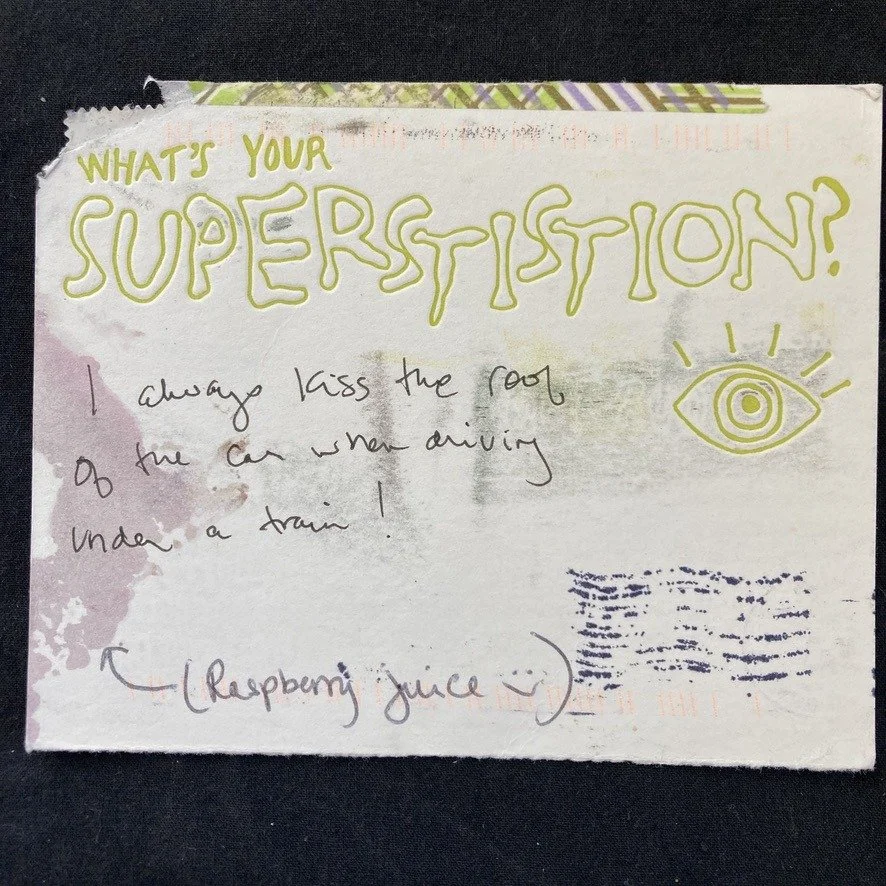 WHAT'S YOUR
SUPERSTISTION?
I always kiss the roof
of the car when driving
under a train!
(Raspberry juice :))